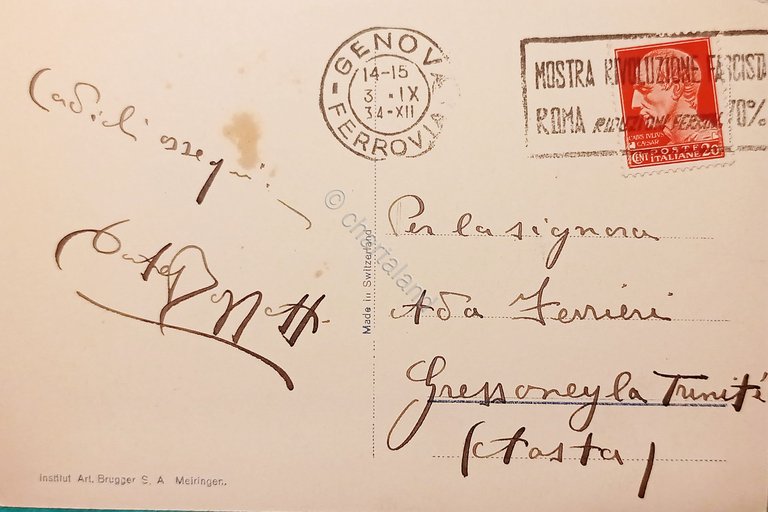 GENOVA
14-15
3 · IX
34-XII
FERROVIA
MOSTRA RIVOLUZIONE FASCISTA
ROMA RIDUZIONI FERROV. 70%
CAIVS IVLIVS
CAESAR
CENT
POSTE
ITALIANE 20
Cordiali ossequi
Per la signora
Ada Ferrieri
Gressoney la Trinité
(Aosta)
Made in Switzerland
© chartaland
Institut Art. Brugger S. A. Meiringen.